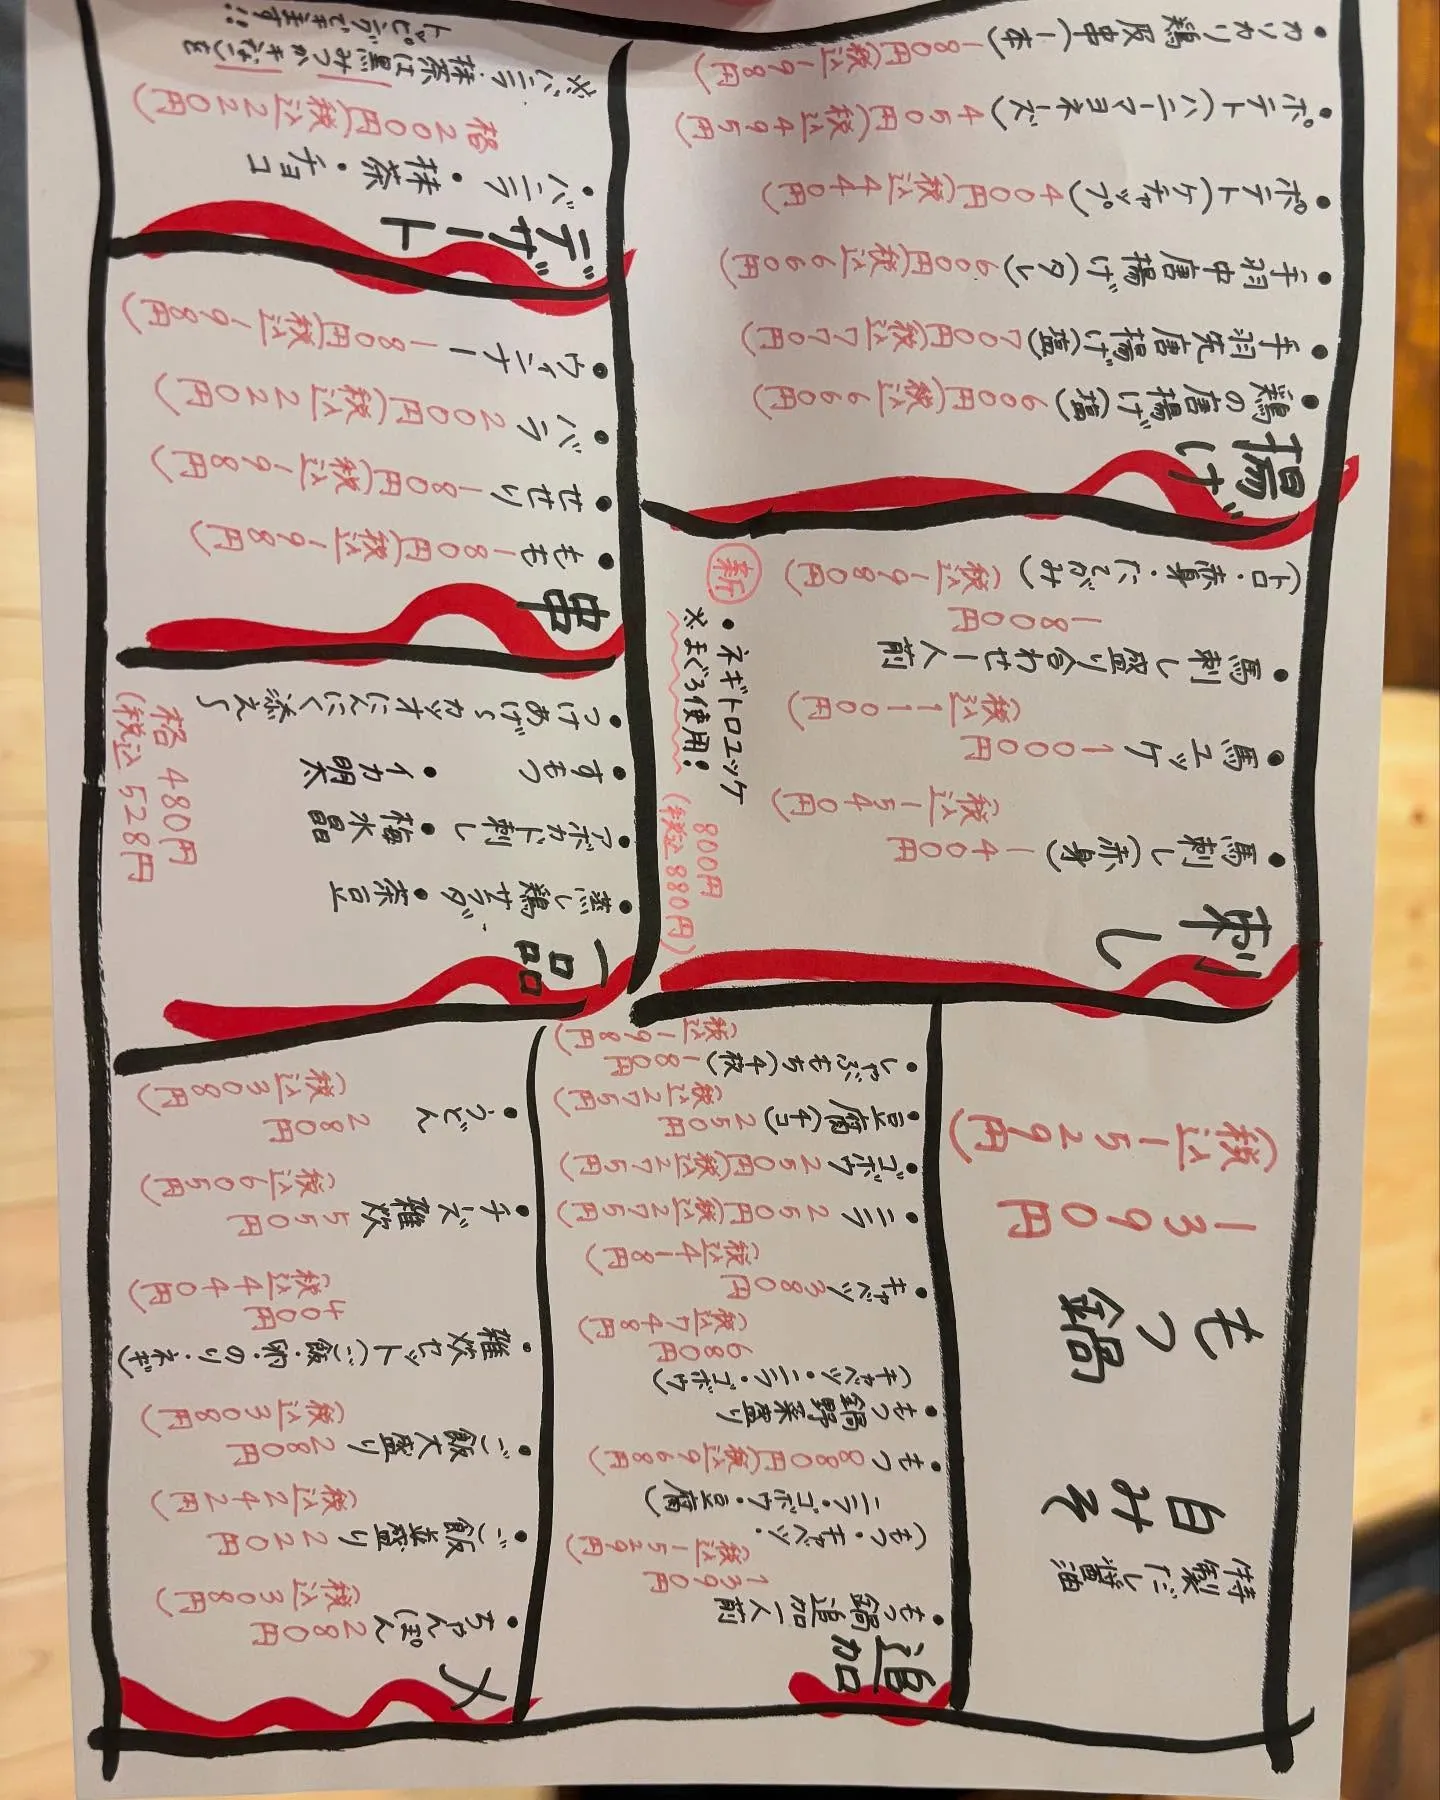 特製だし醤油
白みそ
もつ鍋
1390円
(税込1529円)
追加
・もつ鍋追加一人前
1390円
(税込1529円)
(もつ・キャベツ・
ニラ・ゴボウ・豆腐)
・もつ 880円(税込968円)
・もつ鍋野菜盛り
(キャベツ・ニラ・ゴボウ)
680円
(税込748円)
・キャベツ 380円
(税込418円)
・ニラ 250円(税込275円)
・ゴボウ 250円(税込275円)
・豆腐(4コ) 250円
(税込275円)
・しゃぶもち(4枚) 180円
(税込198円)
〆
・ちゃんぽん 280円
(税込308円)
・ご飯並盛り 220円
(税込242円)
・ご飯大盛り 280円
(税込308円)
・雑炊セット(ご飯・卵・のり・ネギ)
400円
(税込440円)
・チーズ雑炊 550円
(税込605円)
・うどん 280円
(税込308円)
刺し
・馬刺し(赤身) 1400円
(税込1540円)
・馬ユッケ 1000円
(税込1100円)
・馬刺し盛り合わせ一人前
1800円
(トロ・赤身・たてがみ) (税込1980円)
新
・ネギトロユッケ 800円
※まぐろ使用! (税込880円)
揚げ
・鶏の唐揚げ(塩) 600円(税込660円)
・手羽先唐揚げ(塩) 700円(税込770円)
・手羽中唐揚げ(タレ) 600円(税込660円)
・ポテト(ケチャップ) 400円(税込440円)
・ポテト(ハニーマヨネーズ) 450円(税込495円)
・カリカリ鶏皮串(一本)
180円(税込198円)
一品
・蒸し鶏サラダ ・茶豆
・アボカド刺し ・梅水晶
・すもつ ・イカ明太
・つけあげ〜カツオにんにく添え〜
各480円
(税込528円)
串
・もも 180円(税込198円)
・せせり 180円(税込198円)
・バラ 200円(税込220円)
・ウィンナー 180円
(税込198円)
デザート
・バニラ ・抹茶 ・チョコ
各200円(税込220円)
※バニラ・抹茶は黒みつかきなこを
トッピングできます!!